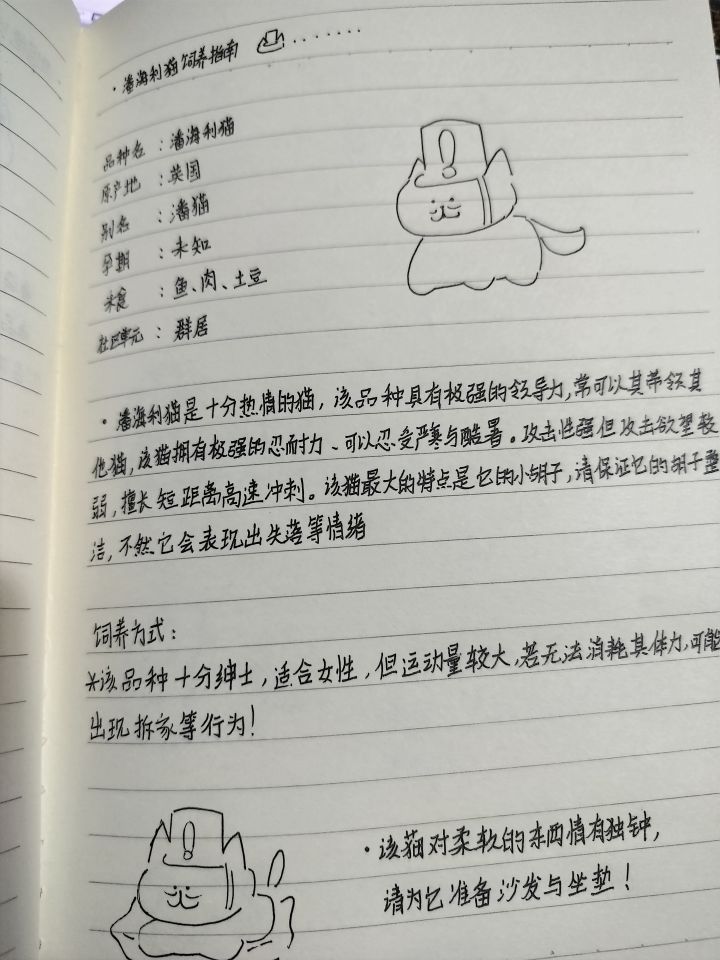 ·潘海利猫饲养指南 .......
品种名：潘海利猫
原产地：英国
别名：潘猫
孕期：未知
米食：鱼、肉、土豆
社区单元：群居
·潘海利猫是十分热情的猫，该品种具有极强的领导力，常可以其带领其
他猫，该猫拥有极强的忍耐力、可以忍受严寒与酷暑。攻击性强但攻击欲望较
弱，擅长短距离高速冲刺。该猫最大的特点是它的小胡子，请保证它的胡子整
洁，不然它会表现出失落等情绪
饲养方式：
*该品种十分绅士，适合女性，但运动量较大，若无法消耗其体力，可能
出现拆家等行为！
·该猫对柔软的东西情有独钟，
请为它准备沙发与坐垫！